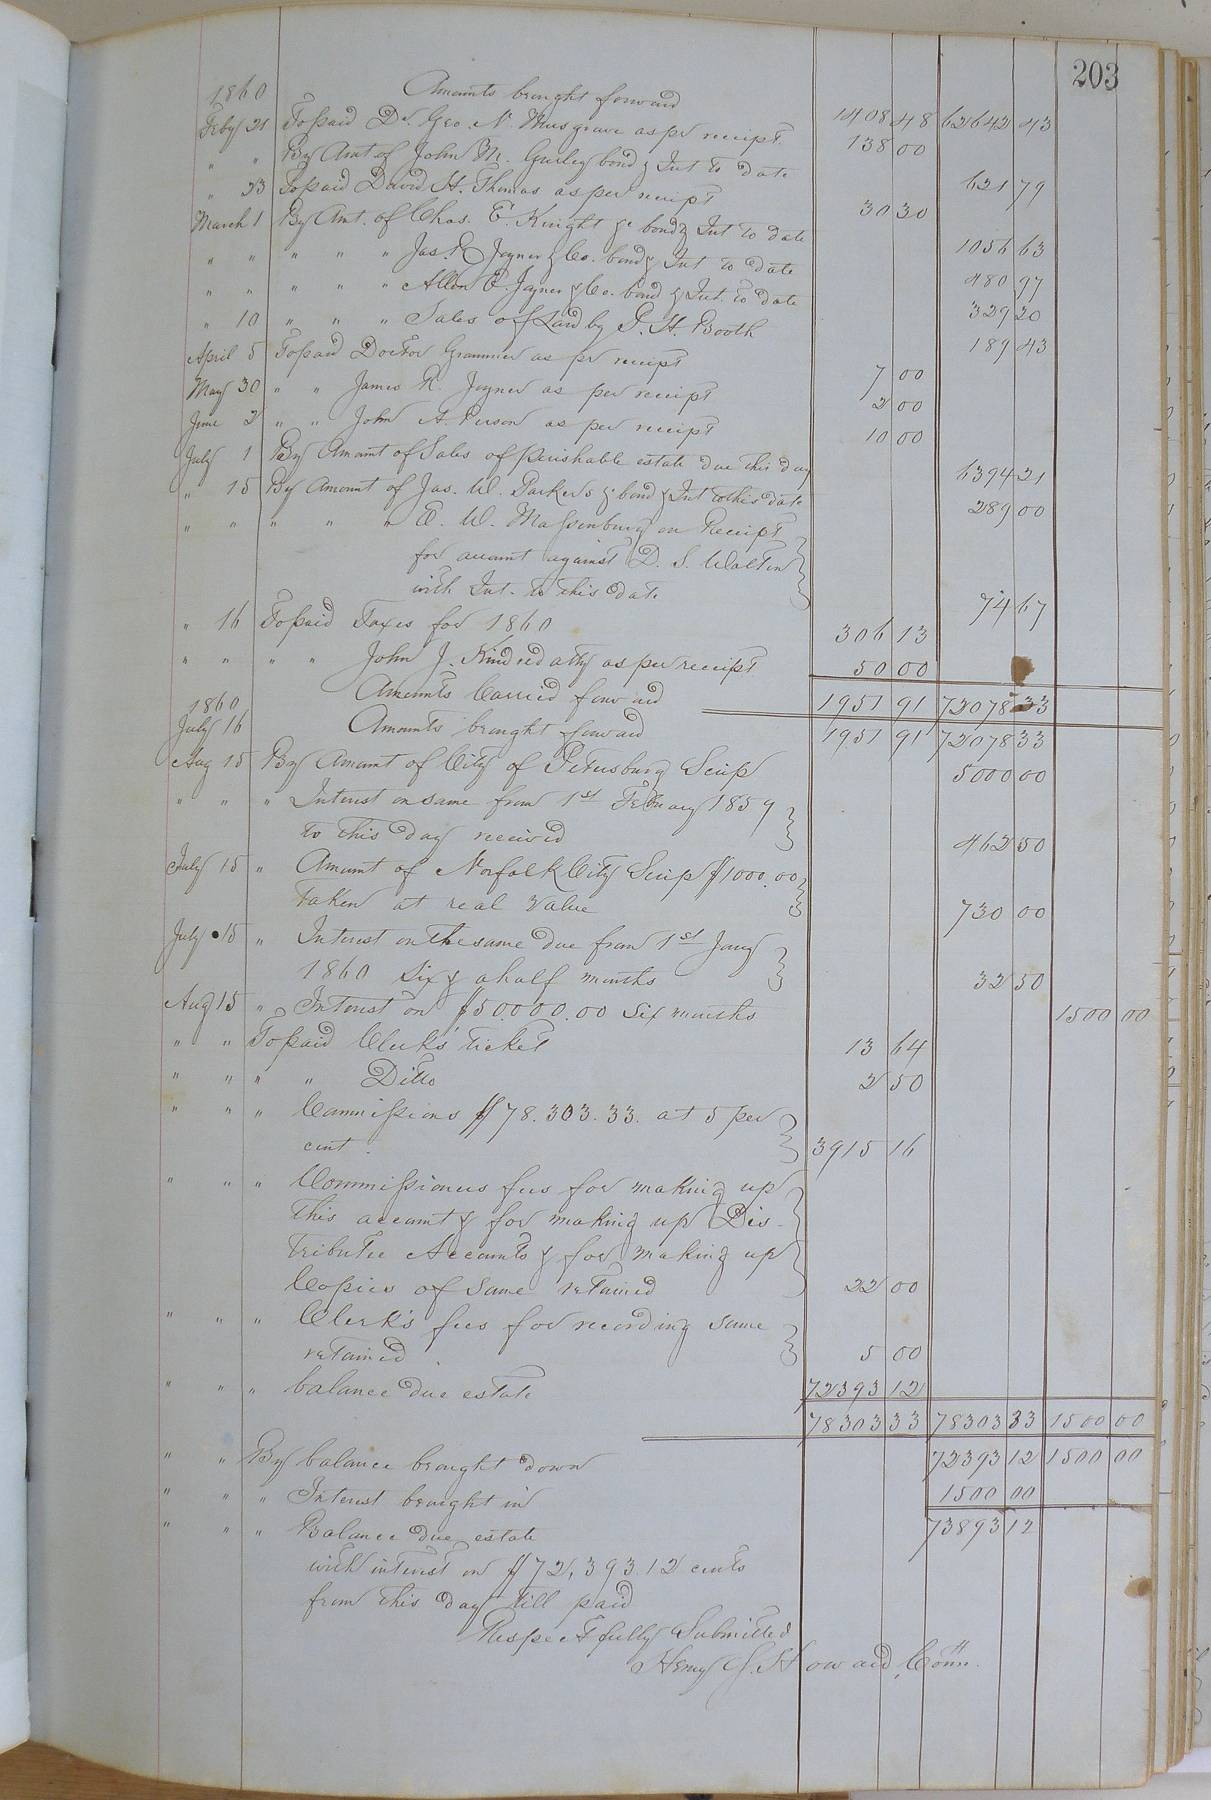 203
1860 Amounts brought forward 1408 48 62642 43
Feby 21 To paid Dr. Geo. N. Musgrave as pr receipt 138 00
" " By Amt of John M. Gurley bond & Int to date 621 79
" 23 To paid David H. Thomas as per receipt 30 30
March 1 By Amt. of Chas. E. Knight &c bond & Int to date 1056 63
" " " " " Jas. R Joyner & Co. bond & Int to date 480 97
" " " " " Allen P. Joyner & Co. bond & Int. to date 329 20
" 10 " " " Sales of Land by P. H. Booth 189 43
April 5 To paid Doctor Grammer as pr receipt 7 00
May 30 " " James R. Joyner as per receipt 2 00
June 2 " " John A. Person as per receipt 10 00
July 1 By Amount of Sales of perishable estate due this day 6394 21
" 15 By Amount of Jas. W. Parker's &c bond & Int to this date 289 00
" " " " " E. W. Massenburg on Receipt
for account against D. S. Walton
with Int. to this date 74 67
" 16 To paid Taxes for 1860 306 13
" " " " John J. Kindred atty as per receipt 50 00
Amounts Carried forward 1951 91 72078 33
1860
July 16 Amounts brought forward 1951 91 72078 33
Aug 15 By Amount of City of Petersburg Scrip 5000 00
" " " Interest on same from 1st February 1859
to this day received 462 50
July 15 " Amount of Norfolk City Scrip $1000.00
taken at real value 730 00
July 15 " Interest on the same due from 1st Jany
1860 six & a half months 32 50
Aug 15 " Interest on $50.000.00 six months 1500 00
" " To paid Clerk's ticket 13 64
" " " " Ditto 2 50
" " " Commissions $78.303.33. at 5 per
cent. 3915 16
" " " Commissioners fees for making up
this account & for making up Dis-
tributee Accounts & for making up
Copies of Same retained 22 00
" " " Clerk's fees for recording same
retained 5 00
" " " balance due estate 72393 12
78303 33 78303 33 1500 00
" " By balance brought down 72393 12 1500 00
" " " Interest brought in 1500 00
" " " Balance due estate 73893 12
with interest on $72,393.12 cents
from this day till paid
Respectfully Submitted
Henry J. Howard, Comr.